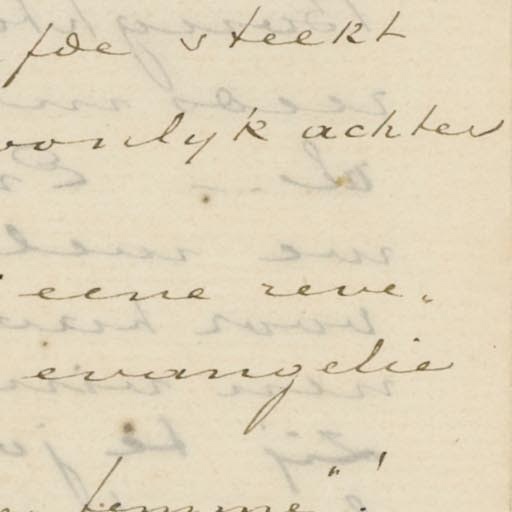 fde steekt
oonlyk achter
eene reve„
evangelie
femme"!